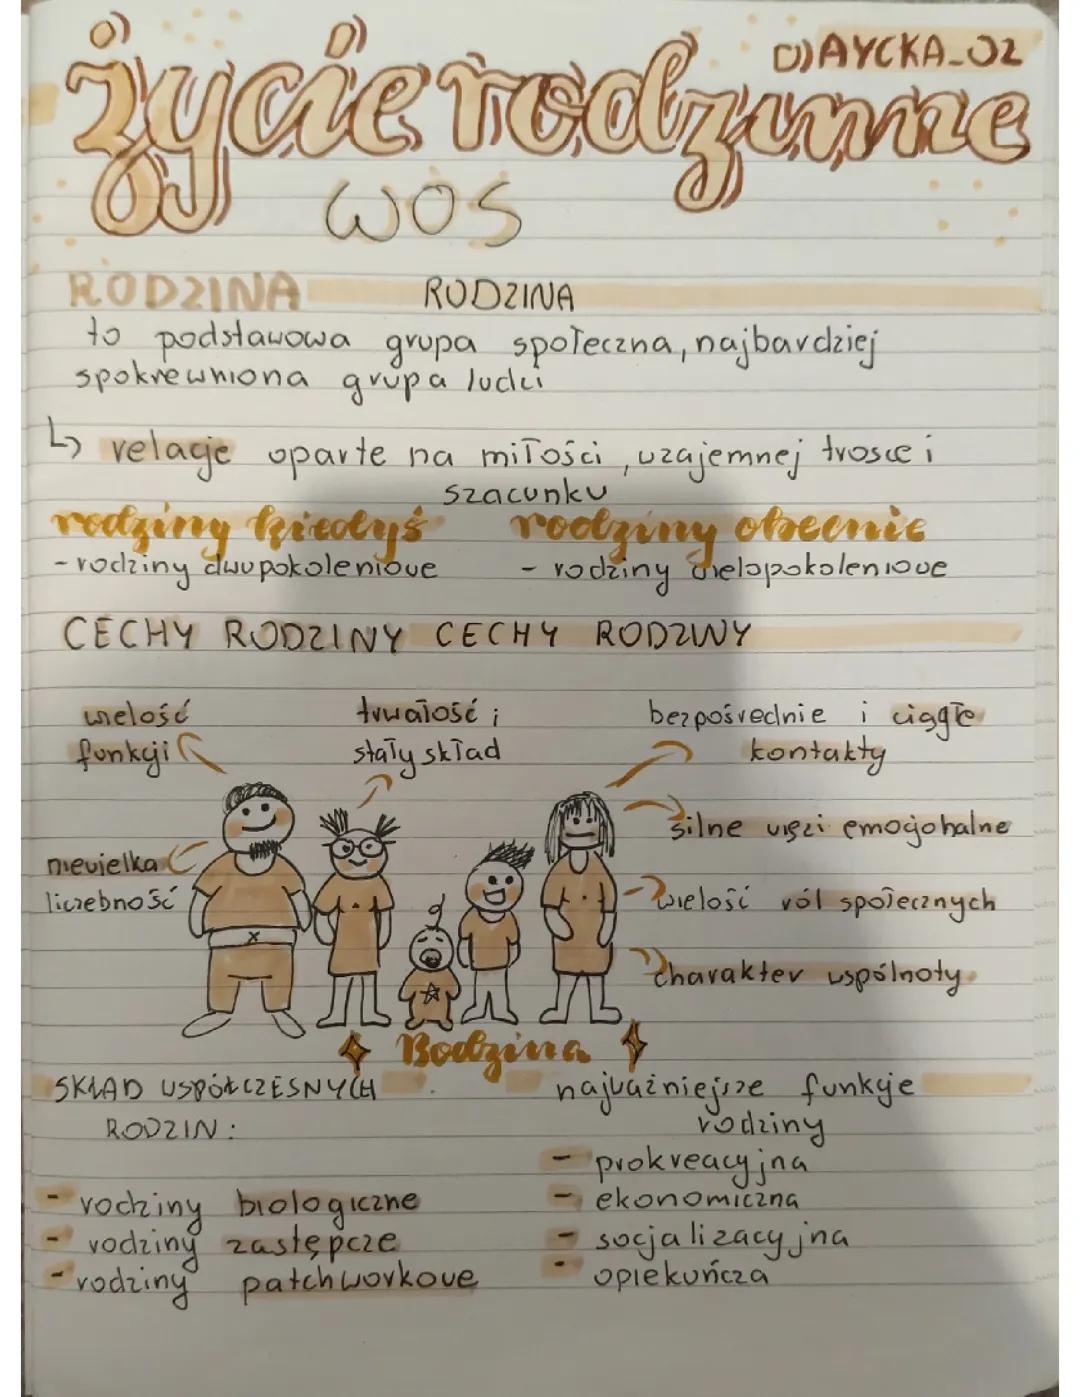 D)AYCKA_02
życie rodzinne
WOS
RODZINA RODZINA
to podstawowa grupa społeczna, najbardziej
spokrewniona grupa ludzi
↳ relacje oparte na miłości, wzajemnej trosce i
szacunku
rodziny kiedyś rodziny obecnie
- rodziny dwupokoleniowe - rodziny wielopokoleniowe
CECHY RODZINY CECHY RODZINY
wielość
funkcji
trwałość i
stały skład
bezpośrednie i ciągłe
kontakty
silne więzi emocjonalne
niewielka
liczebność
wielość ról społecznych
charakter wspólnoty
Rodzina
SKŁAD WSPÓŁCZESNYCH
RODZIN:
- rodziny biologiczne
- rodziny zastępcze
- rodziny patchworkowe
najważniejsze funkcje
rodziny
- prokreacyjna
- ekonomiczna
- socjalizacyjna
- opiekuńcza